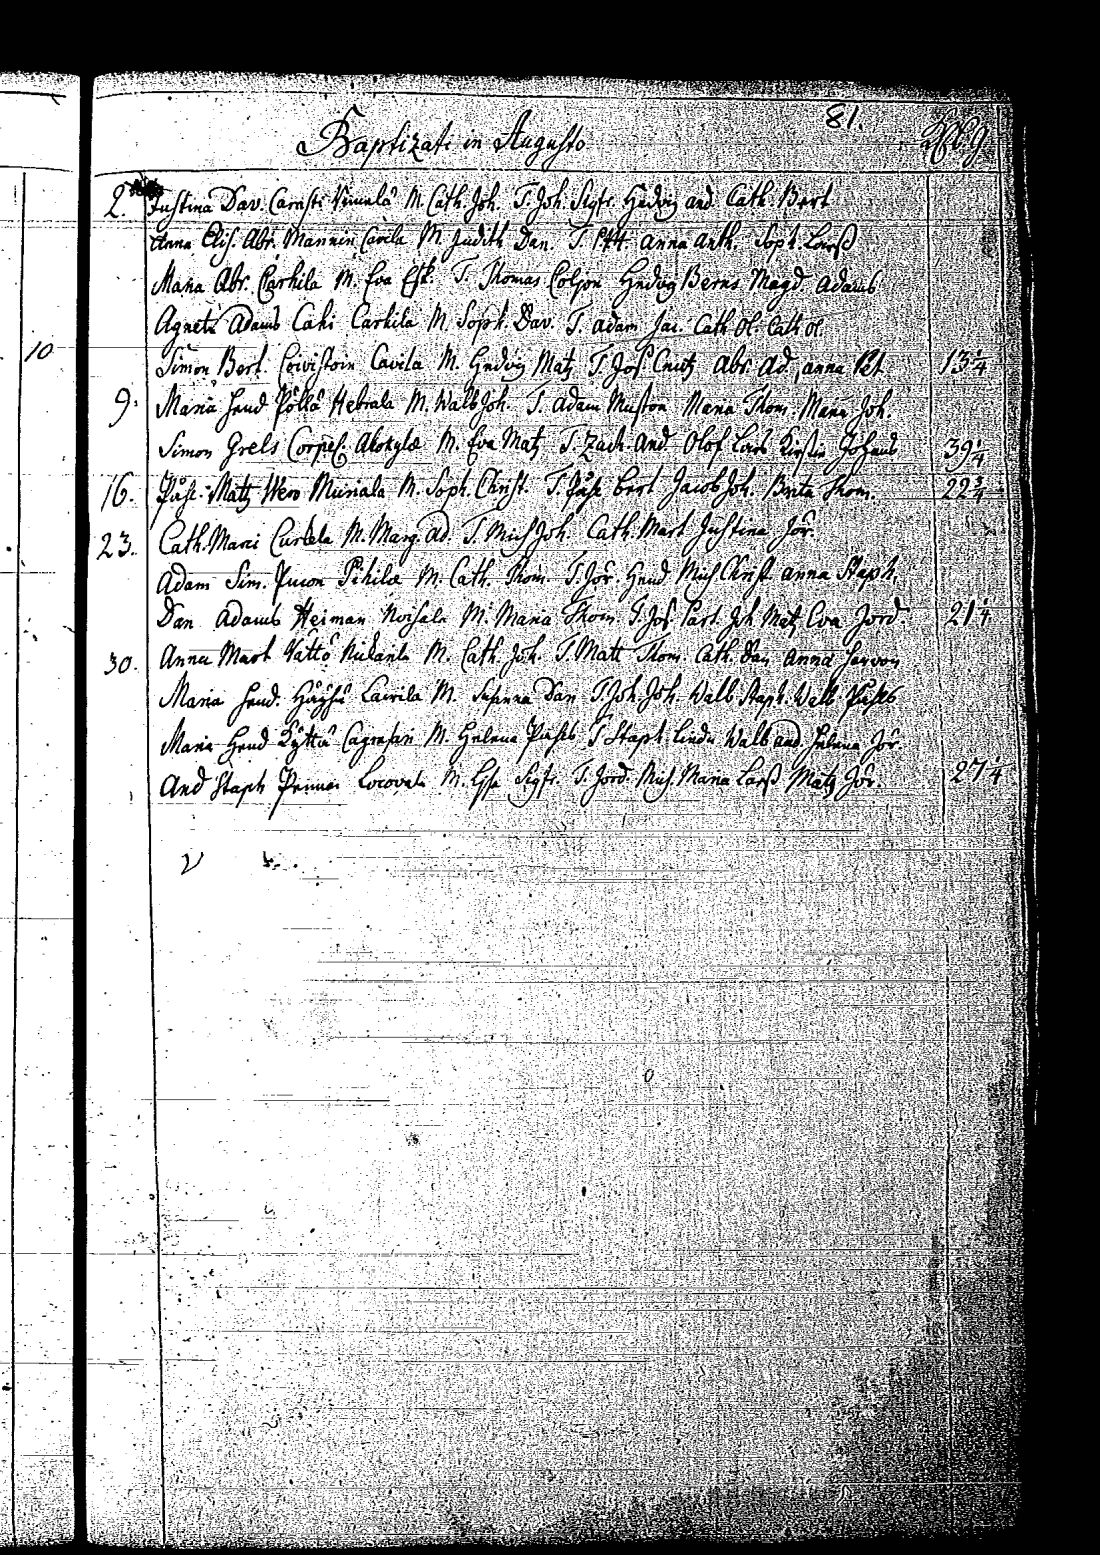 81.
Baptizati in Augusto
10
2. Justina Dav. Carasti M. Cath. Joh. T. Joh. Sigfr. Hedvig and. Cath Bert
Anna Elis. Abr. Mannin Cavila M. Judith Dan. T. anna anth. Soph. Larß
Maria Abr. Carhila M. Eva Esk. T. Thomas Coljon Hedvig Berns Magd. Adams
Agneta Adams Caki Carhila M. Soph. Dav. T. adam Jac. Cath Ol. Cath ol.
Simon Bert. Cavila M. Hedvig Matz T. Jos. Cnutz Abr. Ad. anna Pet 13 1/4
9. Maria Hend Pöllä Hebrala M. Walb Joh. T. Adam Muston Maria Thom. Maria Joh.
Simon Grels Corpes. Alokylæ M. Eva Matz T. Zach. And. Olof Lars Kirstin Johans 39 1/4
16. Påhl. Matz Wero Muriala M. Soph. Christ. T. Påhl bert Jacob Joh. Brita Thom. 22 3/4
23. Cath. Marci Curkela M. Marg. ad. T. Mich Joh. Cath. Mart Justina Jör.
Adam Sim. Pihilæ M. Cath. Thom. T. Jör. Hend Mich Christ. anna Staph.
Dan Adams Heiman Noisala M. Maria Thom. T. Jos. Past. Joh Matz Eva Jord. 21 1/4
30. Anna Mart Vätto M. Cath. Joh. T. Matt Thom. Cath. Dan Anna
Maria Hend. Laurila M. Susanna Dan T. Joh. Joh. Walb Staph. Walb Påhls
Maria Hend Kyttä M. Helena Påhls T Staph. Walb and. Helena Jör.
And Staph Pennai M. Lisa Sigfr. T. Jord. Mich. Maria Larß Matz Jör. 27 1/4